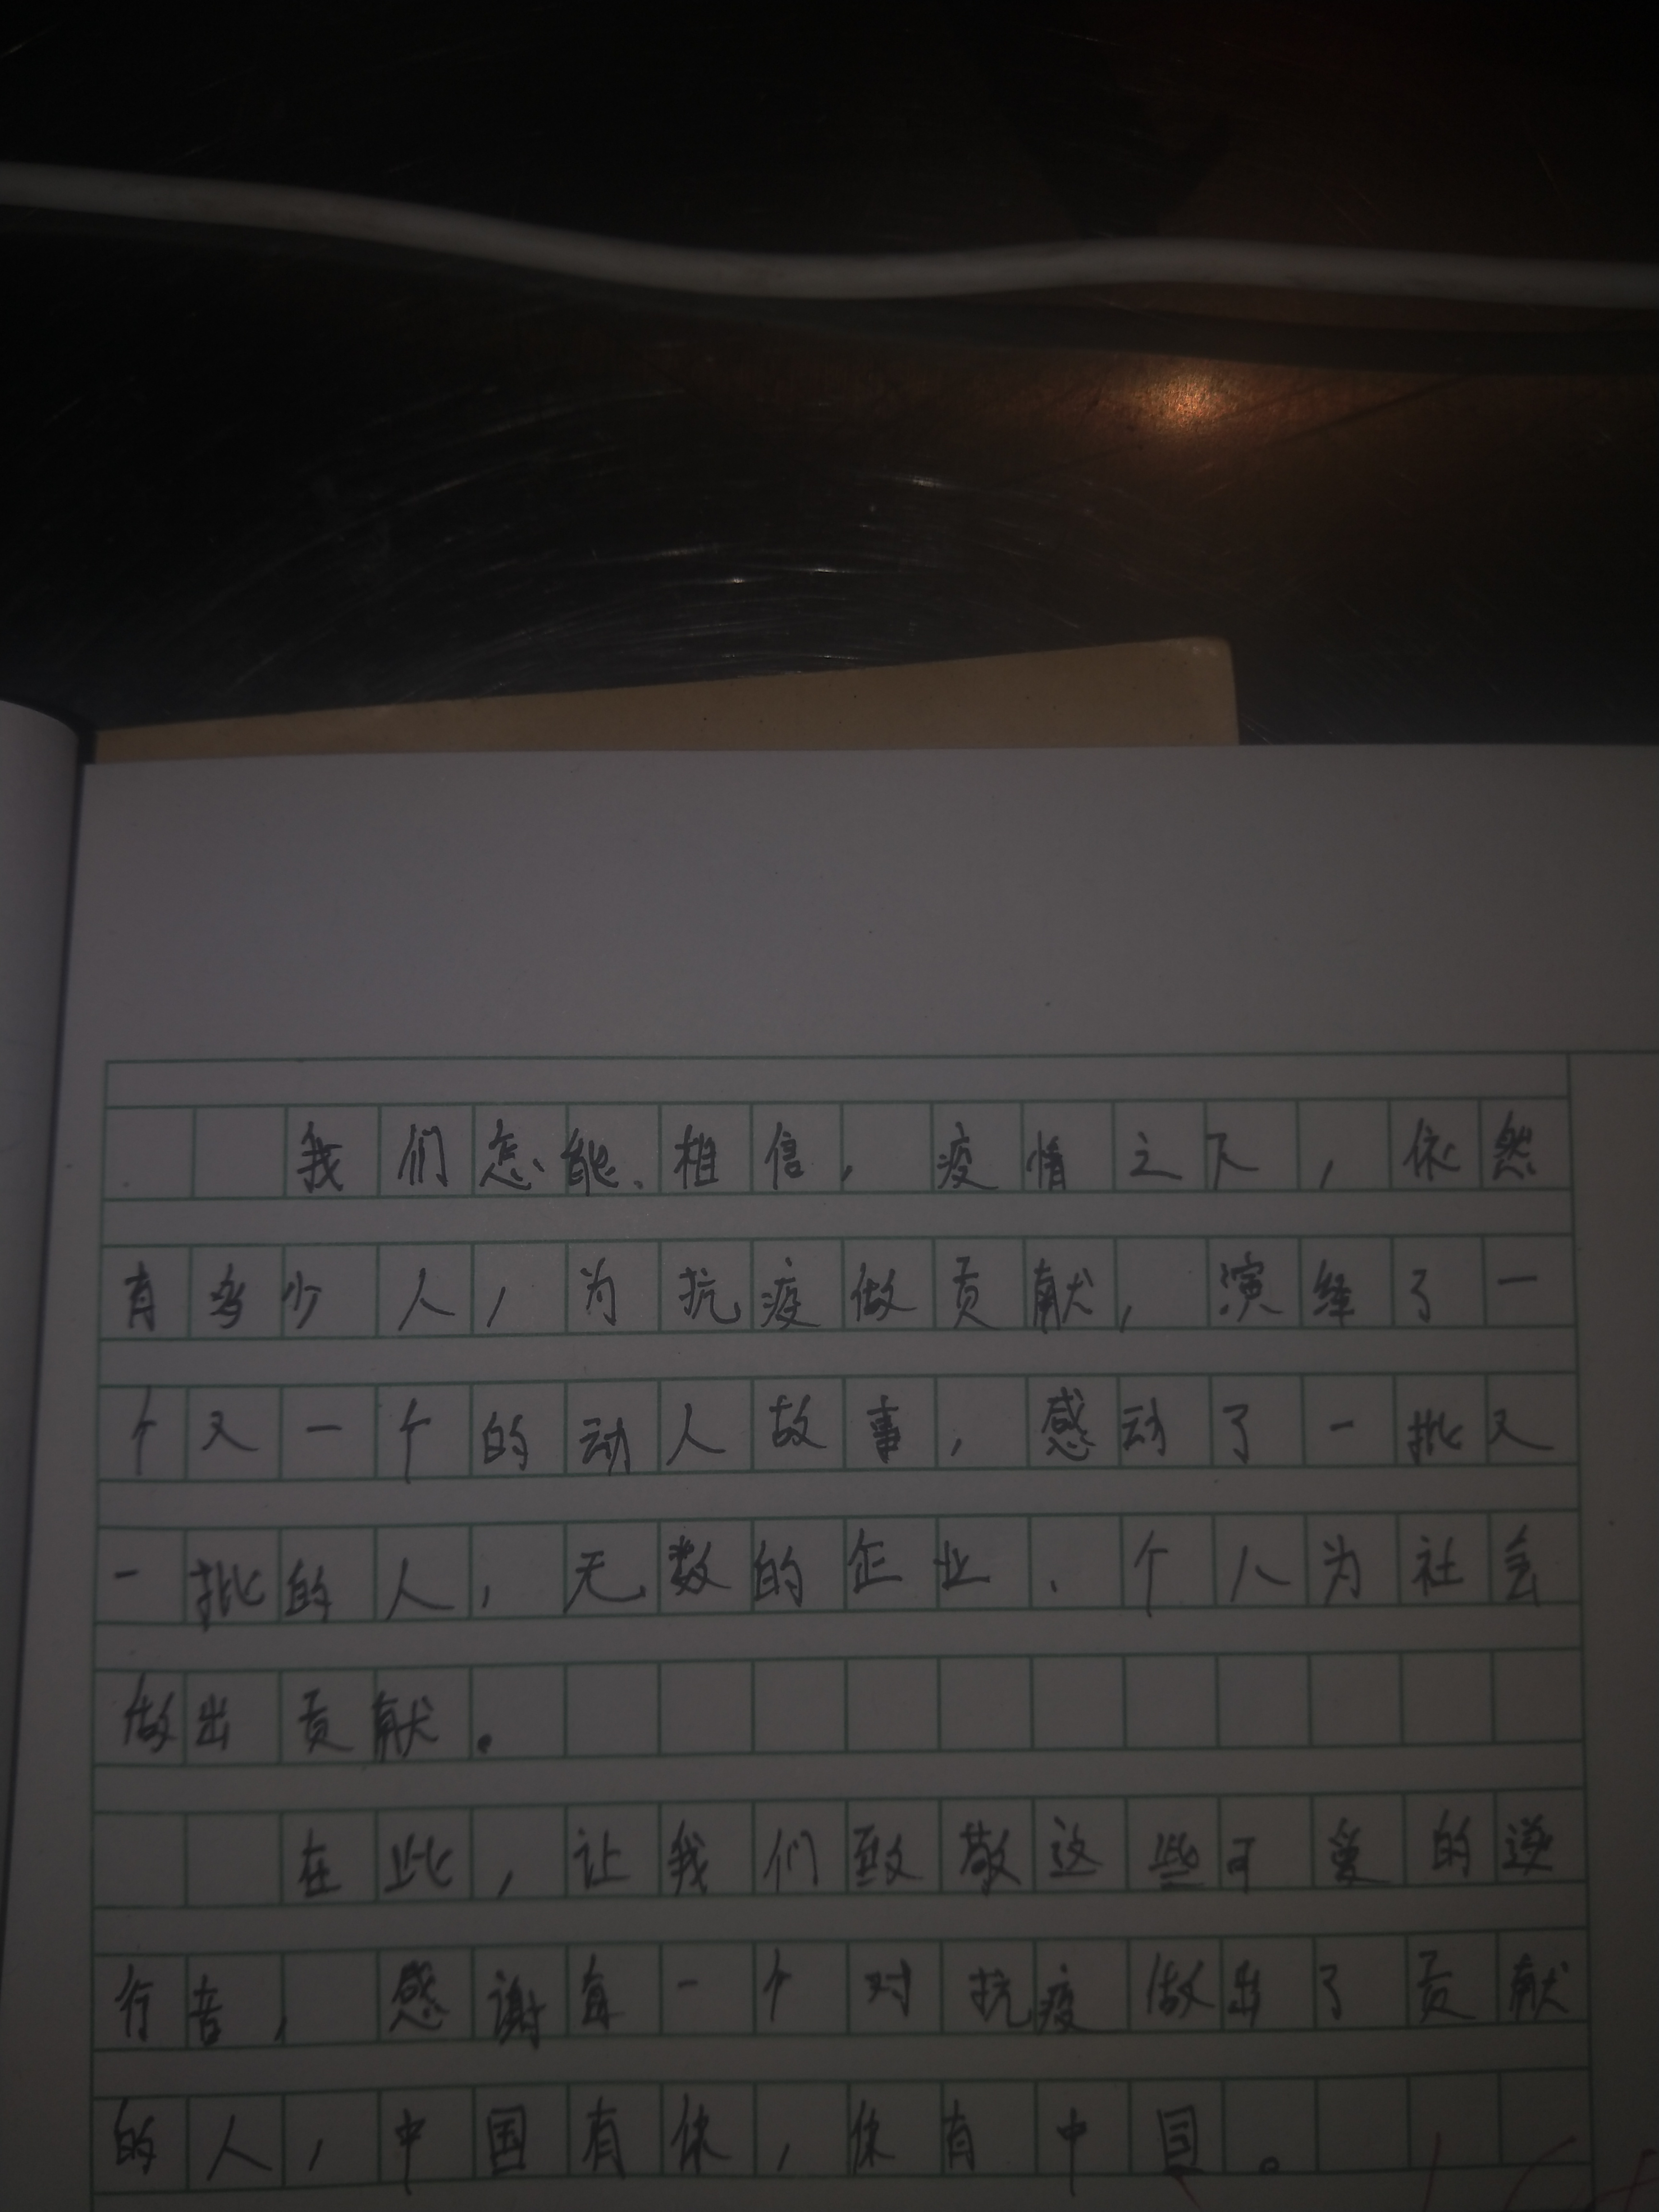 我们怎能相信，疫情之下，依然
有多少人，为抗疫做贡献，演绎了一
个又一个的动人故事，感动了一批又
一批的人，无数的企业、个人为社会
做出贡献。
在此，让我们致敬这些可爱的逆
行者，感谢每一个对抗疫做出了贡献
的人，中国有你，你有中国。